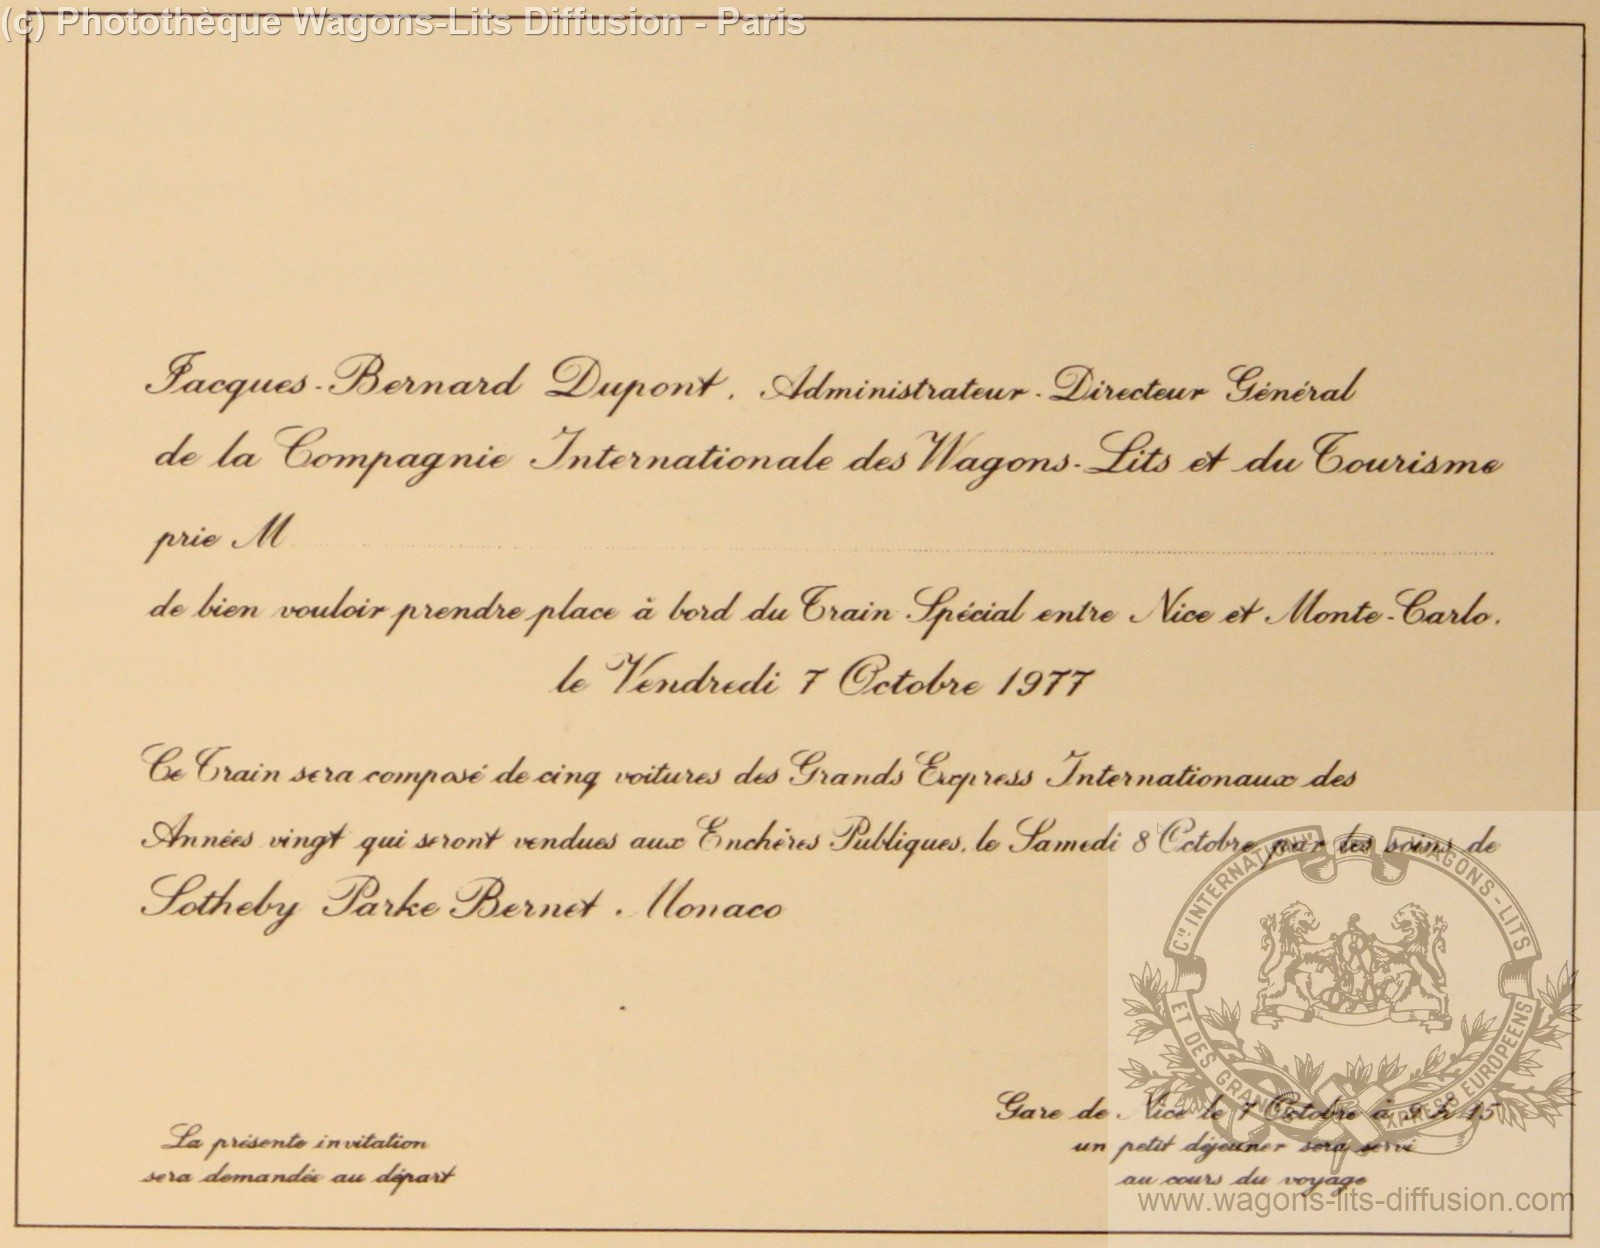 (c) Photothèque Wagons-Lits Diffusion - Paris
Jacques-Bernard Dupont, Administrateur-Directeur Général
de la Compagnie Internationale des Wagons-Lits et du Tourisme
prie M
de bien vouloir prendre place à bord du Train Spécial entre Nice et Monte-Carlo,
le Vendredi 7 Octobre 1977
Ce Train sera composé de cinq voitures des Grands Express Internationaux des
Années vingt qui seront vendues aux Enchères Publiques, le Samedi 8 Octobre par les soins de
Sotheby Parke Bernet. Monaco
Cie INTERNATIONALE DES WAGONS-LITS
ET DES GRANDS EXPRESS EUROPEENS
Gare de Nice le 7 Octobre à 9 h 45
un petit déjeuner sera servi
au cours du voyage
La présente invitation
sera demandée au départ
www.wagons-lits-diffusion.com